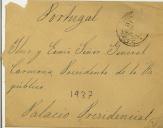 Portugal
Ilmo y Exmo Senor General
Carmona Presidente de la Re
publica
1927
Palacio Presidencial